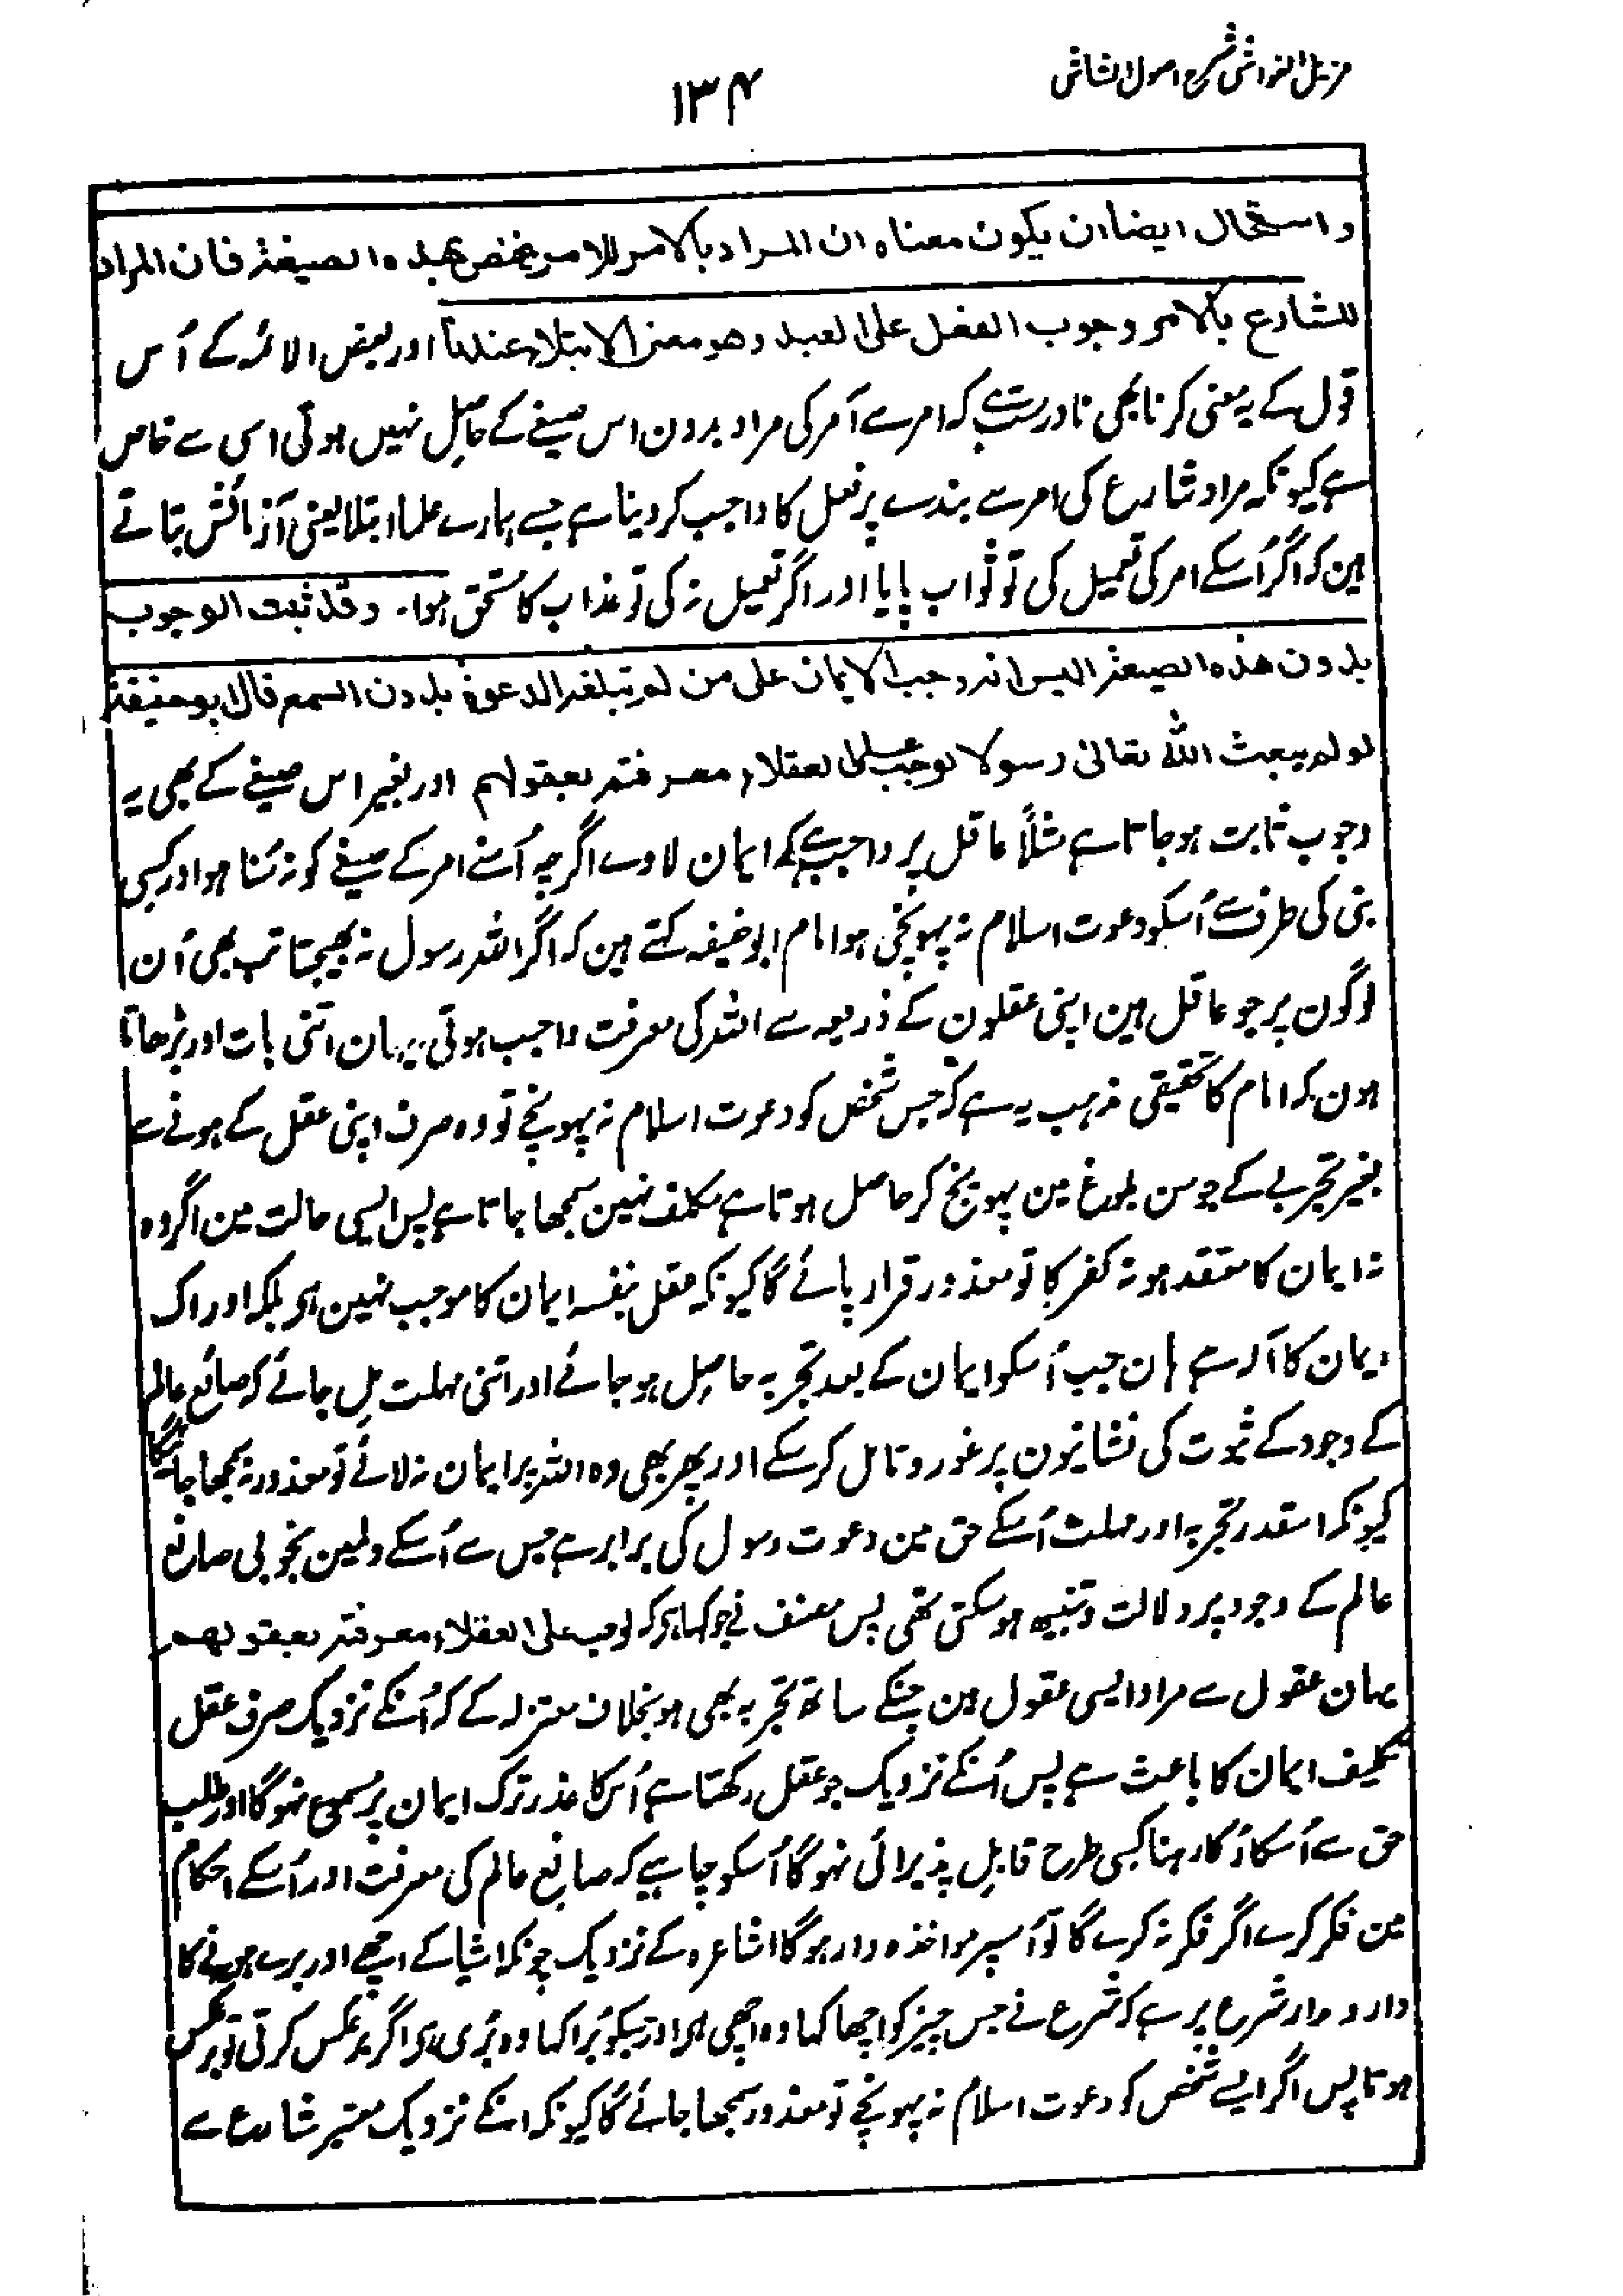 مزیل الغواشی شرح اصول الشاشی
۱۳۴
واستحال ایضا ان یکون معناه ان المراد بالامر للامر یختص بهذه الصیغة فان المراد
للشارع بالامر وجوب الفعل علی العبد وهو معنی الابتلاء عندنا اور بعض الائمہ کے اُس
قول کے یہ معنی کرنا بھی نادرست ہے کہ امر سے آمر کی مراد بدون اس صیغے کے حاصل نہیں ہوتی اسی سے خاص
ہے کیونکہ مراد شارع کی امر سے بندے پر فعل کا واجب کر دینا ہے جسے ہمارے علما ابتلا یعنی آزمائش بتاتے
ہین کہ اگر اُسکے امر کی تعمیل کی تو ثواب پایا اور اگر تعمیل نہ کی تو عذاب کا مستحق ہوا۔ وقد ثبت الوجوب
بدون هذه الصیغة الیس انه وجب الایمان علی من لم تبلغه الدعوة بدون السمع قال ابو حنیفة
لو لم یبعث الله تعالی رسولا لوجب علی العقلاء معرفته بعقولهم اور بغیر اس صیغے کے بھی یہ
وجوب ثابت ہو جاتا ہے مثلاً عاقل پر واجب ہے کہ ایمان لاوے اگرچہ اُسنے امر کے صیغے کو نہ سُنا ہو اور کسی
نبی کی طرف سے اُسکو دعوت اسلام نہ پہونچی ہو امام ابو حنیفہ کہتے ہین کہ اگر اللہ رسول نہ بھیجتا تب بھی اُن
لوگون پر جو عاقل ہین اپنی عقلون کے ذریعہ سے اللہ کی معرفت واجب ہوتی یہان اتنی بات اور بڑھاتا
ہون کہ امام کا تحقیقی مذہب یہ ہے کہ جس شخص کو دعوت اسلام نہ پہونچے تو وہ صرف اپنی عقل کے ہونے سے
بغیر تجربے کے جو سن بلوغ مین پہونچ کر حاصل ہوتا ہے مکلف نہین سمجھا جاتا ہے پس ایسی حالت مین اگر وہ
نہ ایمان کا معتقد ہو نہ کفر کا تو معذور قرار پائے گا کیونکہ عقل بنفسہ ایمان کا موجب نہین ہے بلکہ ادراک
ایمان کا آلہ ہے ہان جب اُسکو ایمان کے بعد تجربہ حاصل ہو جائے اور اتنی مہلت مل جائے کہ صانع عالم
کے وجود کے ثبوت کی نشانیون پر غور و تامل کر سکے اور پھر بھی وہ اللہ پر ایمان نہ لائے تو معذور نہ سمجھا جائیگا
کیونکہ اسقدر تجربہ اور مہلت اُسکے حق مین دعوت رسول کی برابر ہے جس سے اُسکے دلمین بخوبی صانع
عالم کے وجود پر دلالت و تنبیہ ہو سکتی تھی پس مصنف نے جو کہا ہے کہ لوجب علی العقلاء معرفته بعقولهم
یہان عقول سے مراد ایسی عقول ہین جنکے ساتھ تجربہ بھی ہو بخلاف معتزلہ کے کہ اُنکے نزدیک صرف عقل
تکلیف ایمان کا باعث ہے پس اُنکے نزدیک جو عقل رکھتا ہے اُس کا عذر ترک ایمان پر مسموع نہوگا اور طلب
حق سے اُسکا رُکا رہنا کسی طرح قابل پذیرائی نہوگا اُسکو چاہیے کہ صانع عالم کی معرفت اور اُسکے احکام
مین فکر کرے اگر فکر نہ کرے گا تو اُسپر مواخذہ وار ہوگا اشاعرہ کے نزدیک چونکہ اشیا کے اچھے اور برے ہونے کا
دار و مدار شرع پر ہے کہ شرع نے جس چیز کو اچھا کہا وہ اچھی ہے اور جسکو بُرا کہا وہ بُری ہے اگر برعکس کرتی تو برعکس
ہوتا پس اگر ایسے شخص کو دعوت اسلام نہ پہونچے تو معذور سمجھا جائے گا کیونکہ انکے نزدیک معتبر شارع سے